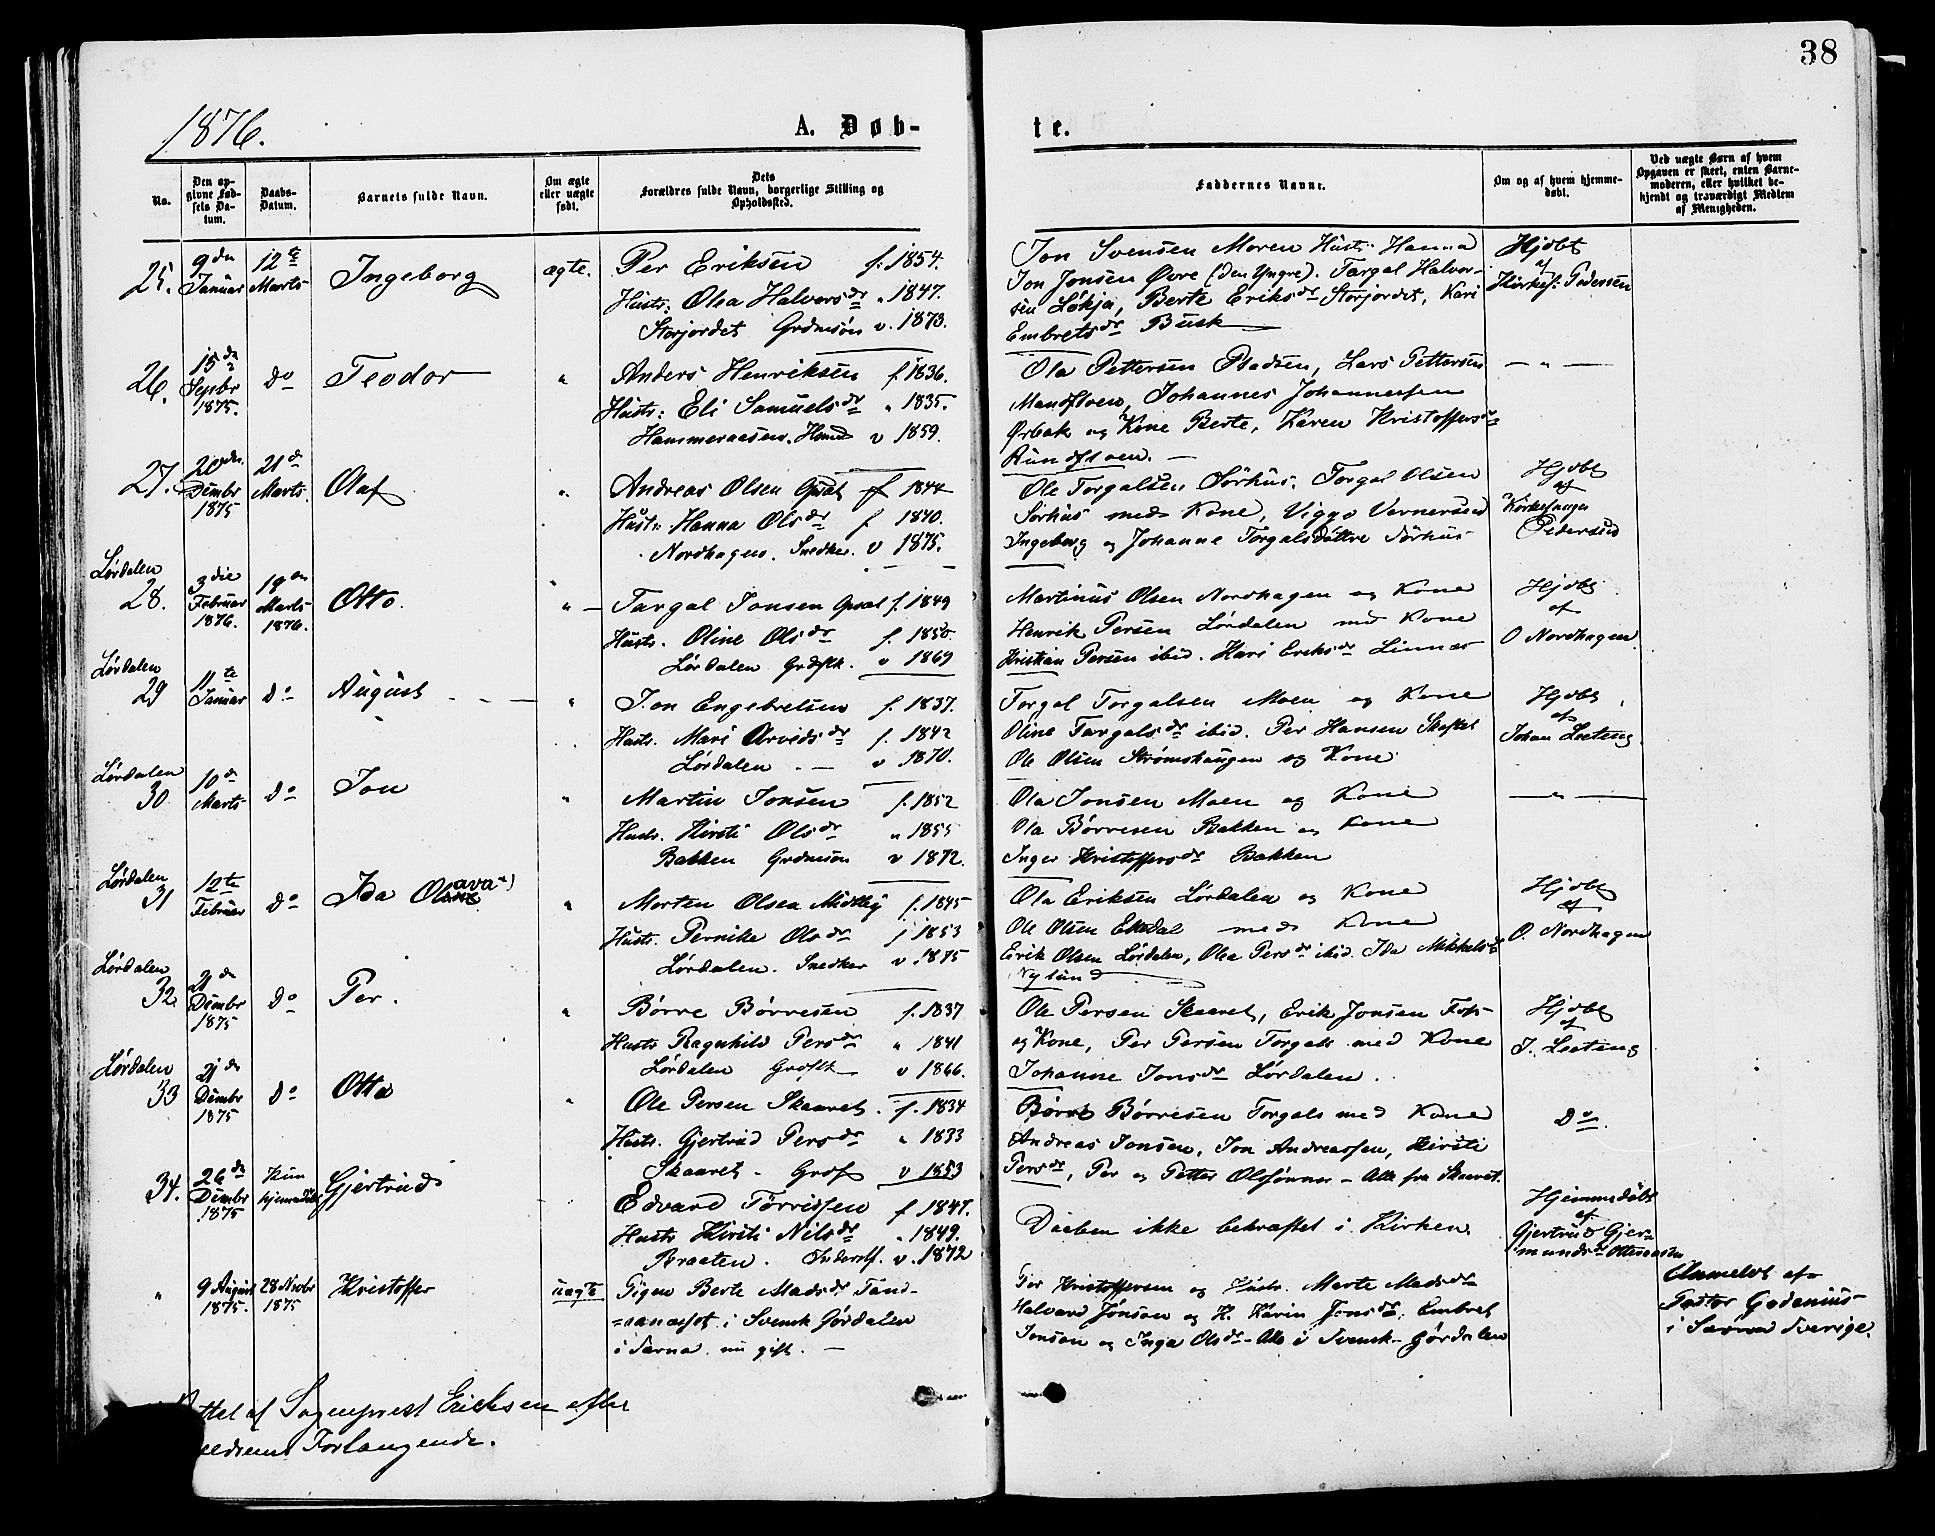 38
1876.
A. Døb-
te.
No.
Den op-
givne Fød-
sels Da-
tum.
Daabs-
Datum.
Barnets fulde Navn.
Om ægte
eller uægte
født.
Dets
Forældres fulde Navn, borgerlige Stilling og
Opholdssted.
Faddernes Navne.
Om og af hvem hjemme-
døbt.
Ved uægte Børn af hvem
Opgaven er skeet, enten Barne-
moderen, eller hvilket be-
kjendt og troværdigt Medlem
af Menigheden.
25.
9de
Januar
12te
Marts
Ingeborg
ægte.
Per Eriksen f. 1854.
Hustr: Olea Halvorsdr " 1847.
Storjordet Grdmsøn v. 1873.
Jon Svensen Moren Hustr. Hanna
Jon Jonsen Øvre (den Yngre). Targal Halvor-
sen Løkja, Berte Eriksdr Storjordet, Kari
Embretsdr Busk
Hjdbt
af
Kirkes: Pedersen
26.
15de
Septbr
1875.
do
Teodor
"
Anders Henriksen f. 1836.
Hustr: Eli Samuelsdr " 1835.
Hammeraasen. v 1859.
Ola Pettersen, Lars Pettersen
Johannes Johannessen
Ørbak og Kone Berte, Karen Kristoffersdr
— " —
27.
20de
Dcmbr
1875
21de
Marts.
Olaf
"
Andreas Olsen Gpsat f 1844
Hustr: Hanna Olsdr f 1840.
Nordhagen. Snedker. v 1875.
Ole Torgalsen Sørhus. Torgal Olsen
Sørhus med Kone, Viggo Vernersen
Ingeborg og Johanne Torgalsdøttre Sørhus
Hjdbt
af
Kirkesanger
Pedersen
Lørdalen
28.
3die
Februar
1876.
19de
Marts
1876.
Otto.
"
Targal Jonsen Gpsat f. 1849
Hustr. Oline Olsdr f. 1850.
Lørdalen Grdflk. v 1869
Martinus Olsen Nordhagen og Kone
Henrik Persen Lørdalen med Kone
Kristian Persen ibid. Kari Eriksdr Linnes
Hjdbt.
af
O Nordhagen
Lørdalen
29
11te
Januar
do
August
"
Jon Engebretsen f. 1837.
Hustr. Mari Arvidsdr f. 1842
Lørdalen — v 1870.
Torgal Torgalsen Moen og Kone
Oline Targalsdr ibid. Per Hansen
Ole Olsen Strømshaugen og Kone
Hjdbt
af
Johan Leeteng
Lørdalen
30
10de
Marts
do
Jon
"
Martin Jonsen f. 1852
Hustr. Kirsti Olsdr " 1855
Bakken Grdmsøn v 1872.
Ola Jonsen Moen og Kone
Ola Børresen Bakken og Kone
Inger Kristoffersdr Bakken
— " —
Lørdalen
31
12te
Februar
do
Ida Olava *)
"
Morten Olsen Midtby f. 1845
Hustr. Pernike Olsdr f 1853
Lørdalen. Snedker v. 1875
Ola Eriksen Lørdalen og Kone
Ole Olsen Ekdal med Kone
Erik Olsen Lørdalen, Olea Persdr ibid. Ida Mikkelsdr
Nysund
Hjdbt
af
O. Nordhagen
Lørdalen
32.
21de
Dcmbr
1875
do
Per.
"
Børre Børresen f. 1837
Hustr Ragnhild Persdr " 1841
Lørdalen Grdflk v 1866.
Ole Persen Skaaret, Erik Jonsen Fos-
og Kone, Per Persen Torgals med Kone
Johanne Jonsdr Lørdalen.
Hjdbt
af
J. Leeteng
Lørdalen
33
21de
Dcmbr
1875
do
Otto
"
Ole Persen Skaaret. f. 1834
Hustr. Gjertrud Persdr " 1833
Skaaret - v 1853
Børre Børresen Torgals med Kone
Andreas Jonsen, Jon Andreassen, Kirsti
Persdr, Per og Petter Olssønner - Alle fra Skaaret.
Do
34.
26de
Dcmbr
1875
Kun
hjemmedøbt
Gjertrud
Edvard Tørrissen f 1847.
Hustr Kirsti Nilsdr " 1849.
Braaten. Inderstf. v. 1872
Daaben ikke bekræftet i Kirken.
Hjemmedøbt
af
Gjertrud Gjer-
mundsdr
"
9 August
1875.
28 Novbr
1875
Kristoffer
uægte
Pigen Berte Madsdr Tand-
=sanæset i Svensk Gørdalen
i Særna nu gift. —
Per Kristoffersen og Hustr. Marte Madsdr
Halvard Jonsen og H. Karin Jonsdr, Embret
Jonsen og Inga Olsdr - Alle i Svensk Gørdalen
Anmeldt af
Pastor Godenius
i Særna Sverige.
af Sognepræst Ericksen efter
Forlangende.